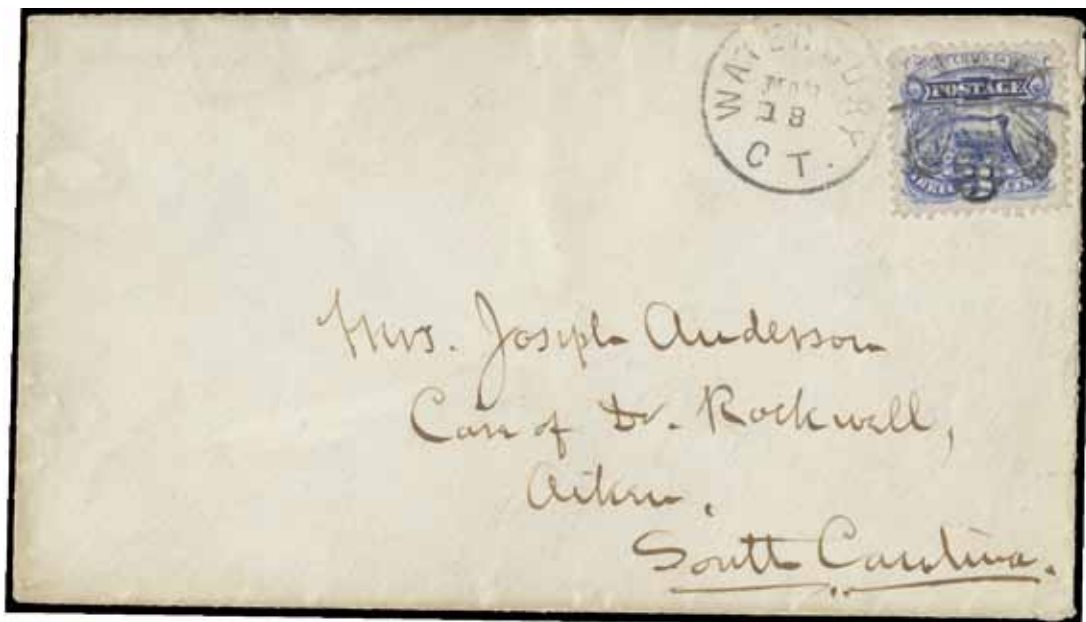 WATERBURY
18
CT.
POSTAGE
3
Mrs. Joseph Anderson
Care of Dr. Rockwell,
Aiken.
South Carolina.